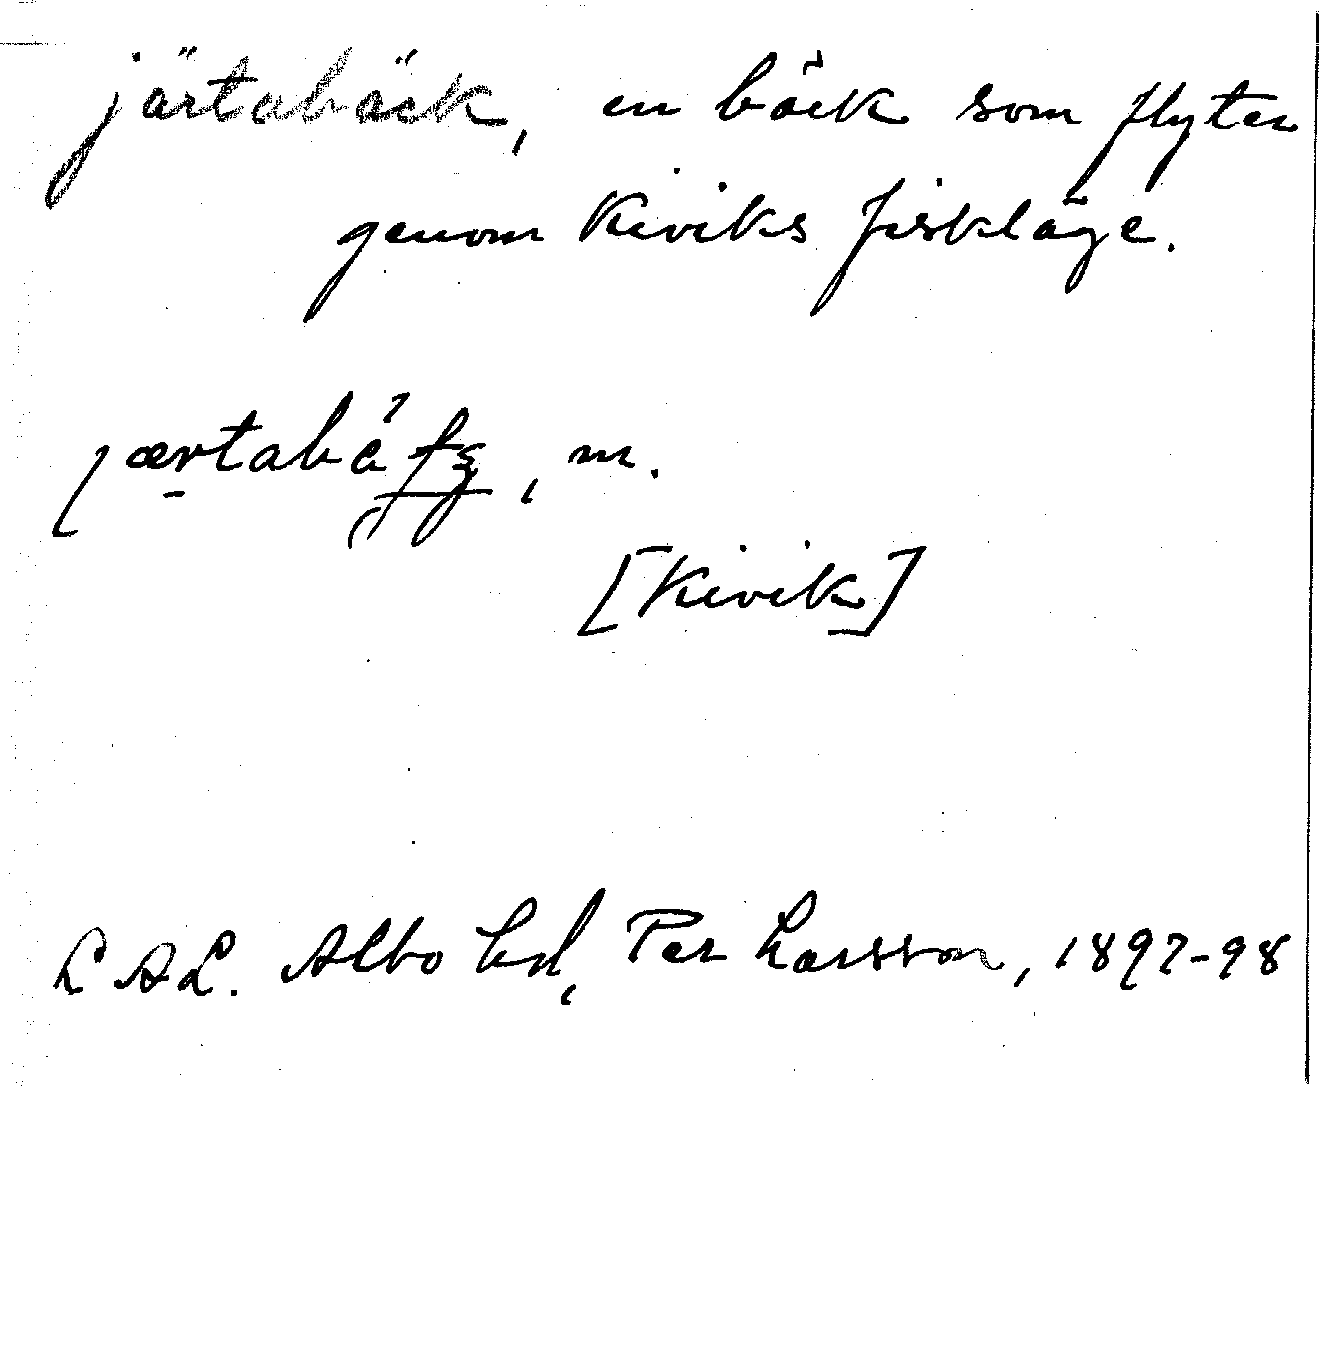 järtabäck, en bäck som flyter
genom Kiviks fiskläge.
m.
[Kivik]
L.A.L. Albo hd, Per Larsson, 1897-98